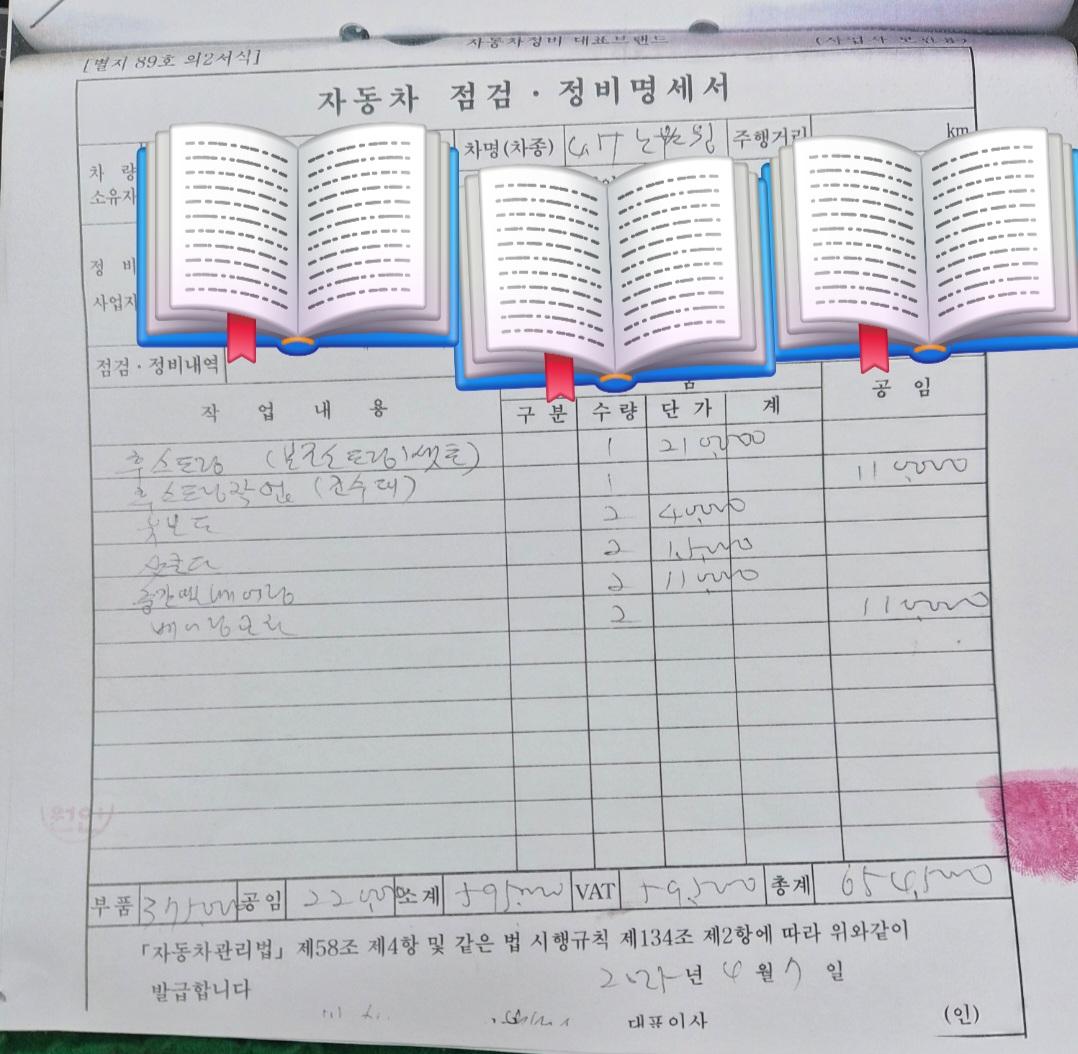 자동차정비 대표브랜드
[별지 89호 의2서식]
자동차 점검 · 정비명세서
차 량
소유자
차명(차종) 주행거리 km
정 비
사업자
점검 · 정비내역
작 업 내 용 구 분 수 량 단 가 계 공 임
후스프링 (보조스프링1셋트) 1 210,000
후스프링작업 (준수대) 1 110,000
유볼트 2 40,000
2 15,000
2 11,000
2 110,000
부품 375,000 공임 220,000 소계 595,000 VAT 59,500 총계 654,500
「자동차관리법」 제58조 제4항 및 같은 법 시행규칙 제134조 제2항에 따라 위와같이
발급합니다 년 4 월 7 일
대표이사 (인)